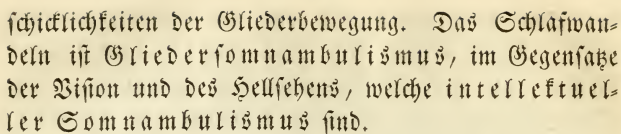 ſchicklichkeiten der Gliederbewegung. Das Schlafwan⸗
deln iſt Gliederſomnambulismus, im Gegenſatze
der Viſion und des Hellſehens, welche intellektuel⸗
ler Somnambulismus ſind.